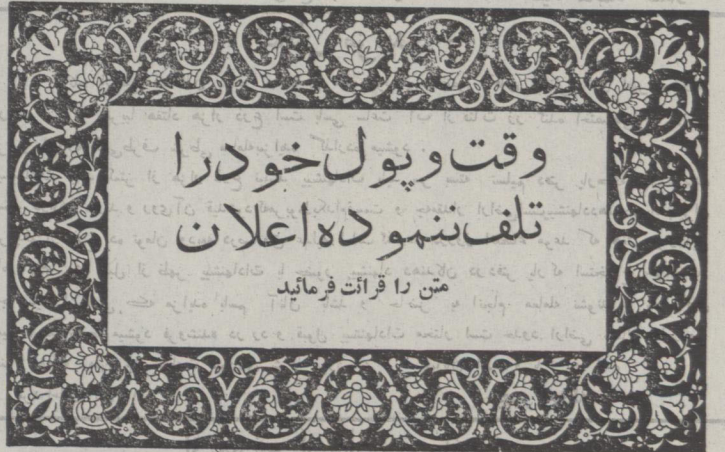 وقت و پول خود را
تلف ننموده اعلان
متن را قرائت فرمائید